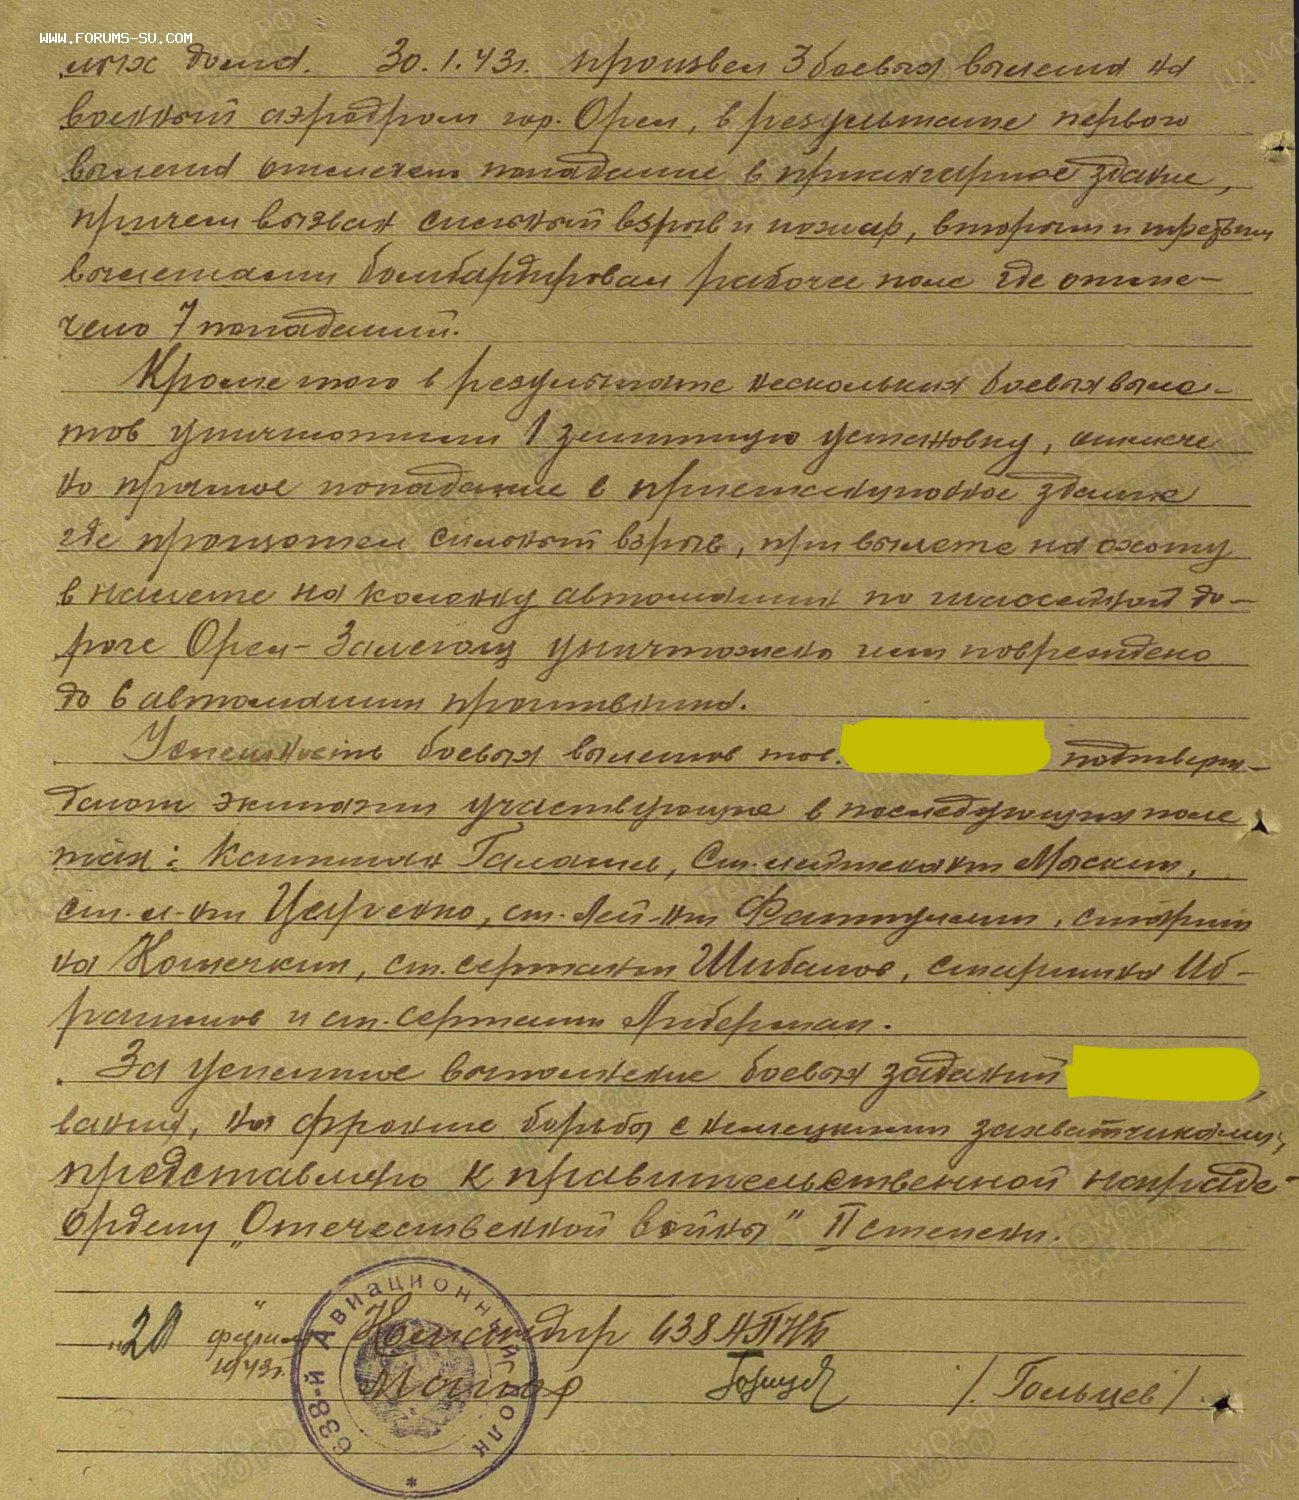 WWW.FORUMS-SU.COM
лых дома. 30.1.43г. произвел 3 боевых вылета на
военный аэродром гор. Орел, в результате первого
вылета отмечен попадание в приангарное здание,
причем вызван сильный взрыв и пожар, вторым и третьим
вылетами бомбардировал рабочее поле где отме-
чено 7 попаданий.
Кроме того в результате нескольких боевых выле-
тов уничтожил 1 зенитную установку, отмече
но прямое попадание в здание
где произошел сильный взрыв, при вылете на охоту
в налете на колонну автомашин по шоссейной до-
роге Орел-Залегощ уничтожено или повреждено
до 6 автомашин противника.
Успешность боевых вылетов тов. подтверж-
дают экипажи участвующие в последующих поле
тах: Капитан Галашев, Ст. лейтенант Мыскин,
ст. л-нт Царенко, ст. лей-нт старши
на Кошечкин, ст. сержант Шибанов, старшина Иб-
рагимов и ст. сержант Либерман.
За успешное выполнение боевых заданий
вания, на фронте борьбы с немецкими захватчиками,
представляю к правительственной награде-
ордену „Отечественной войны" II степени.
„20" февраля 1943г.
Командир 638 АПНБ
Майор /Гольцев/
638-й Авиационный полк